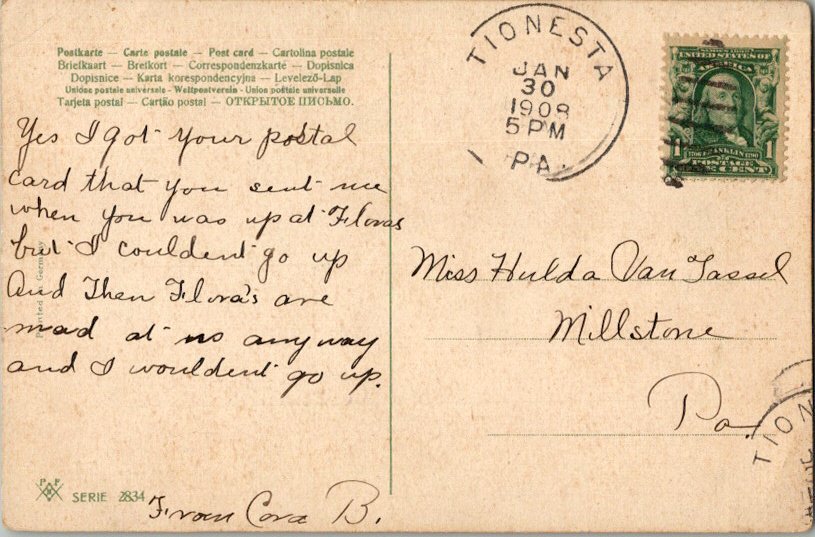 Postkarte — Carte postale — Post card — Cartolina postale
Briefkaart — Brefkort — Correspondenzkarte — Dopisnica
Dopisnice — Karta korespondencyjna — Levelező-Lap
Unione postale universale - Weltpostverein - Union postale universelle
Tarjeta postal — Cartão postal — ОТКРЫТОЕ ПИСЬМО.
Yes I got your postal
card that you sent me
when you was up at Floras
but I couldent go up
and Then Flora's are
mad at us anyway
and I wouldent go up.
From Cora B.
Printed in Germany
SERIE 2834
TIONESTA
JAN
30
1908
5 PM
PA.
UNITED STATES OF
AMERICA
1 1
FRANKLIN
POSTAGE
ONE CENT
Miss Hulda Van Tassel
Millstone
Pa.
TION